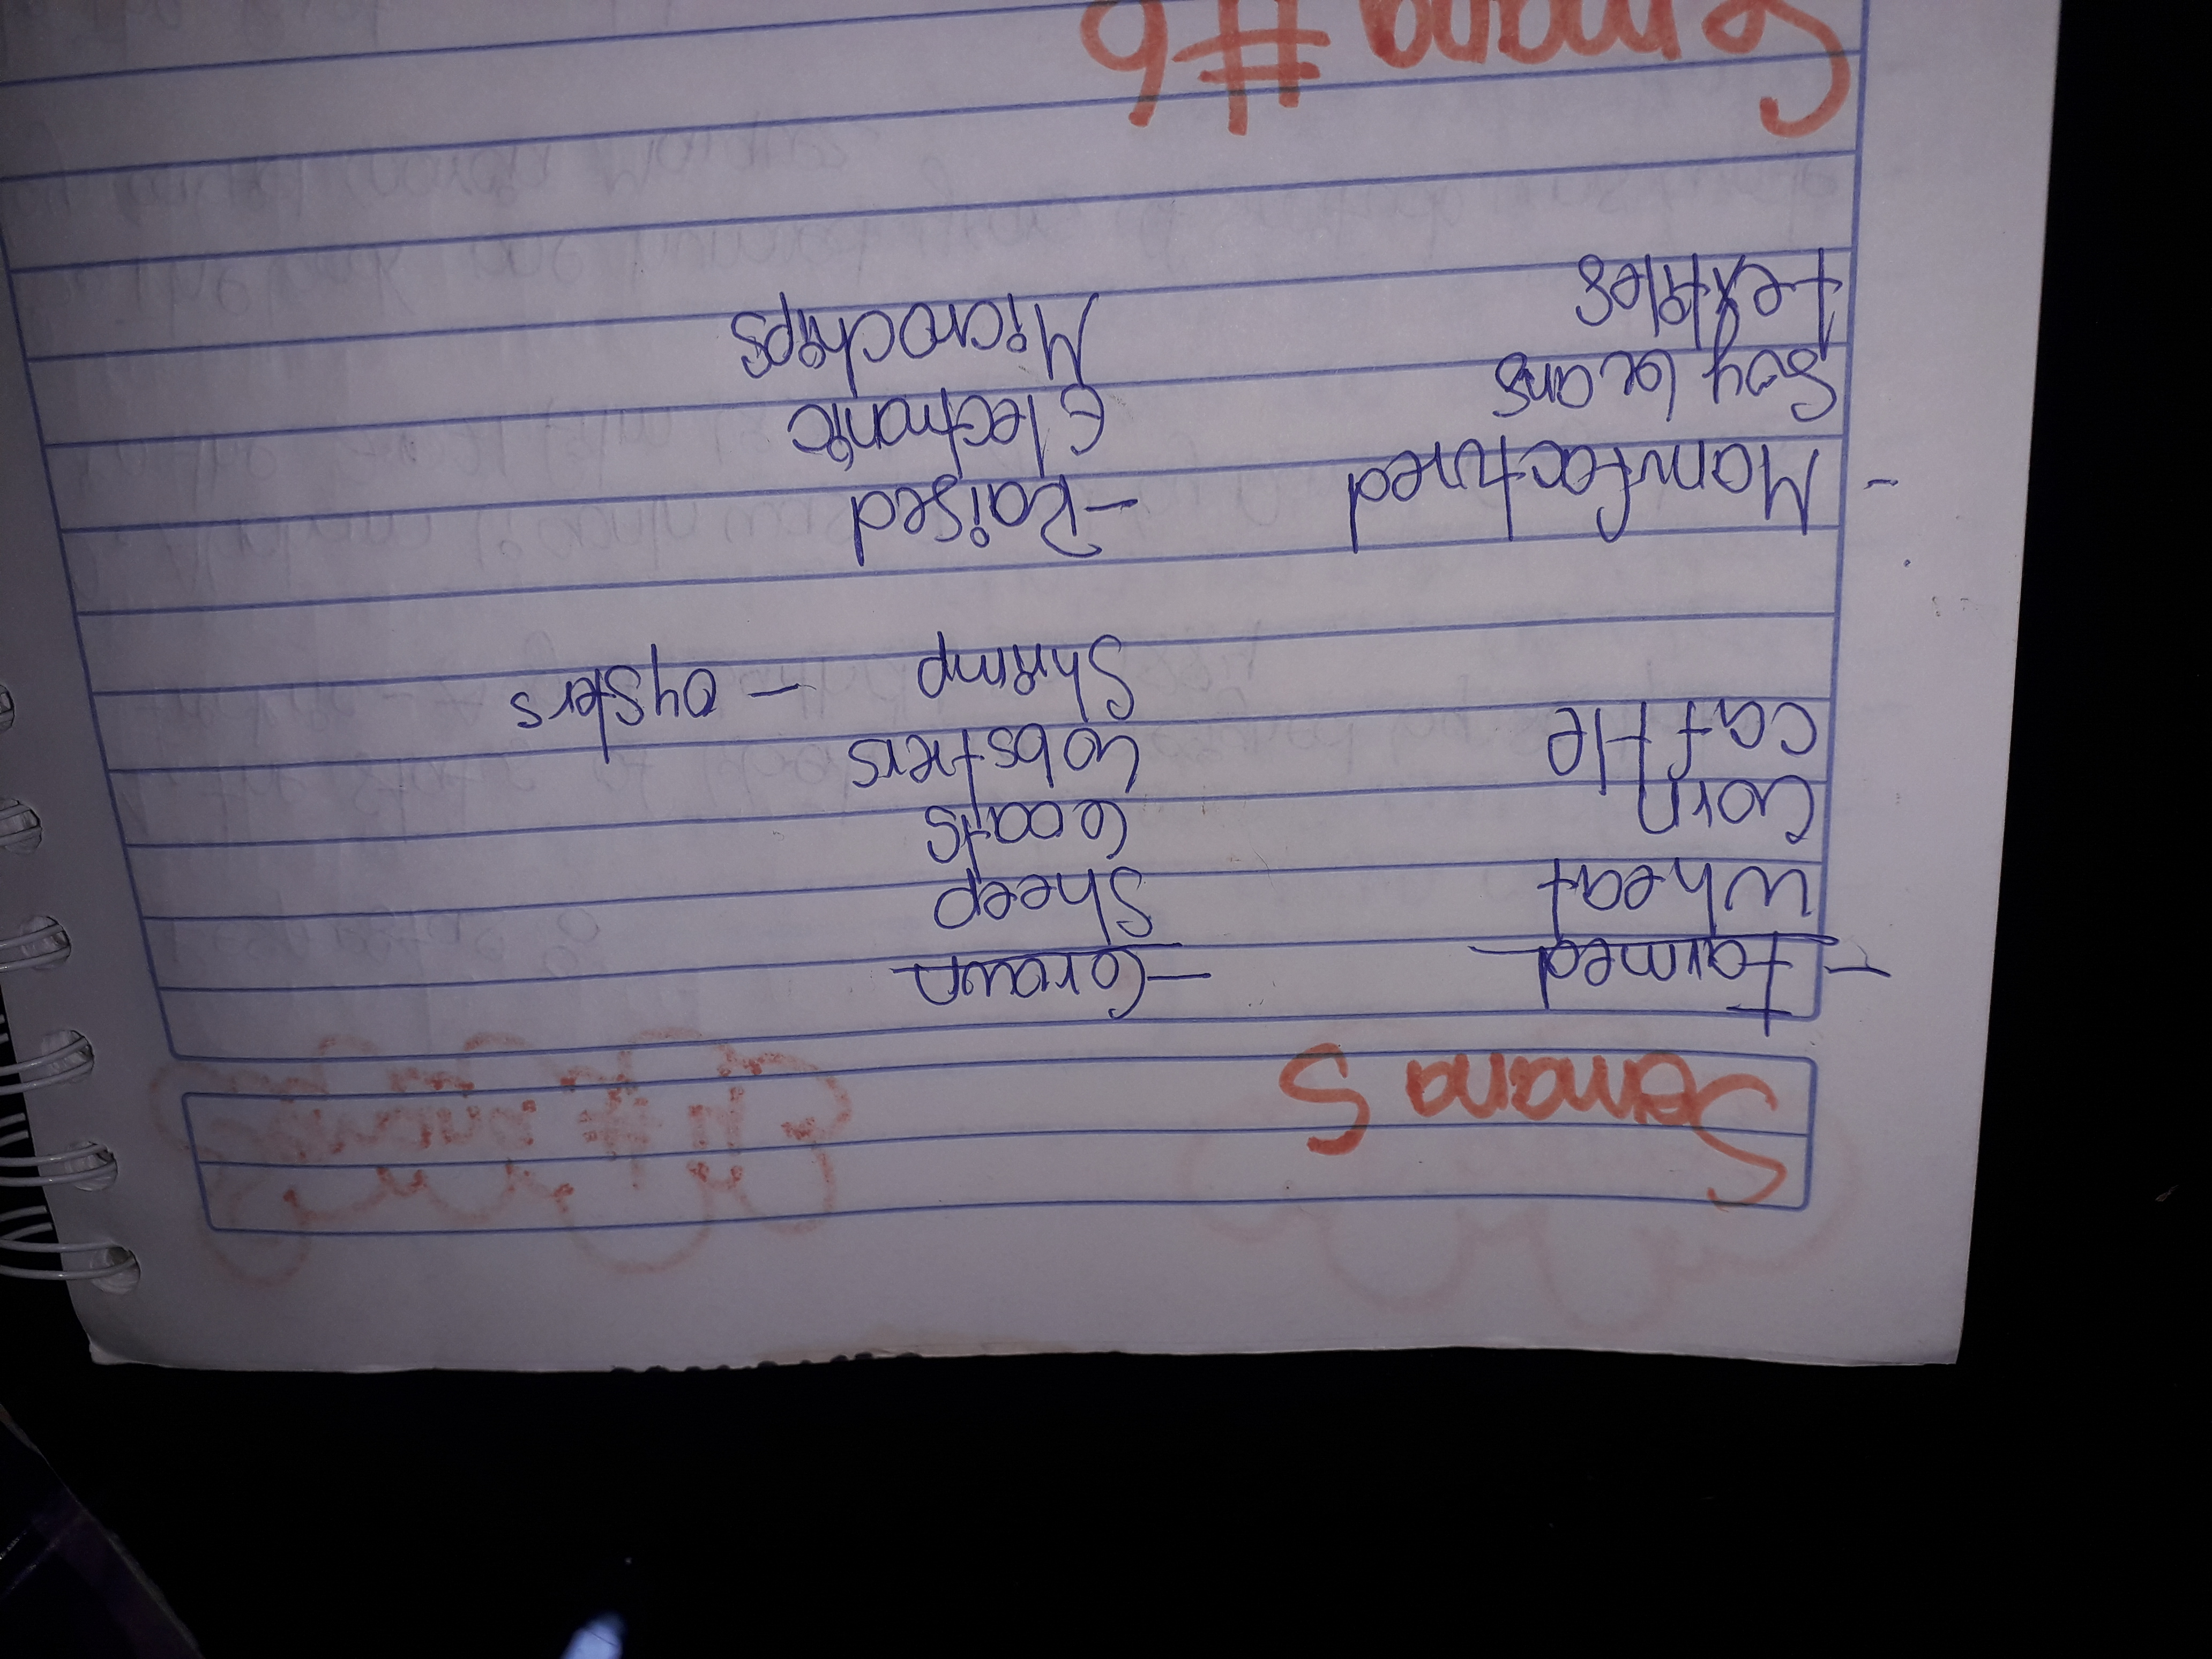 Semana 5
- Farmed - Grown
Wheat Sheep
Corn Goats
Cattle Lobsters
Shrimp - Oysters
- Manufactured - Raised
Soy beans Electronic
Textiles Microchips
Semana #6